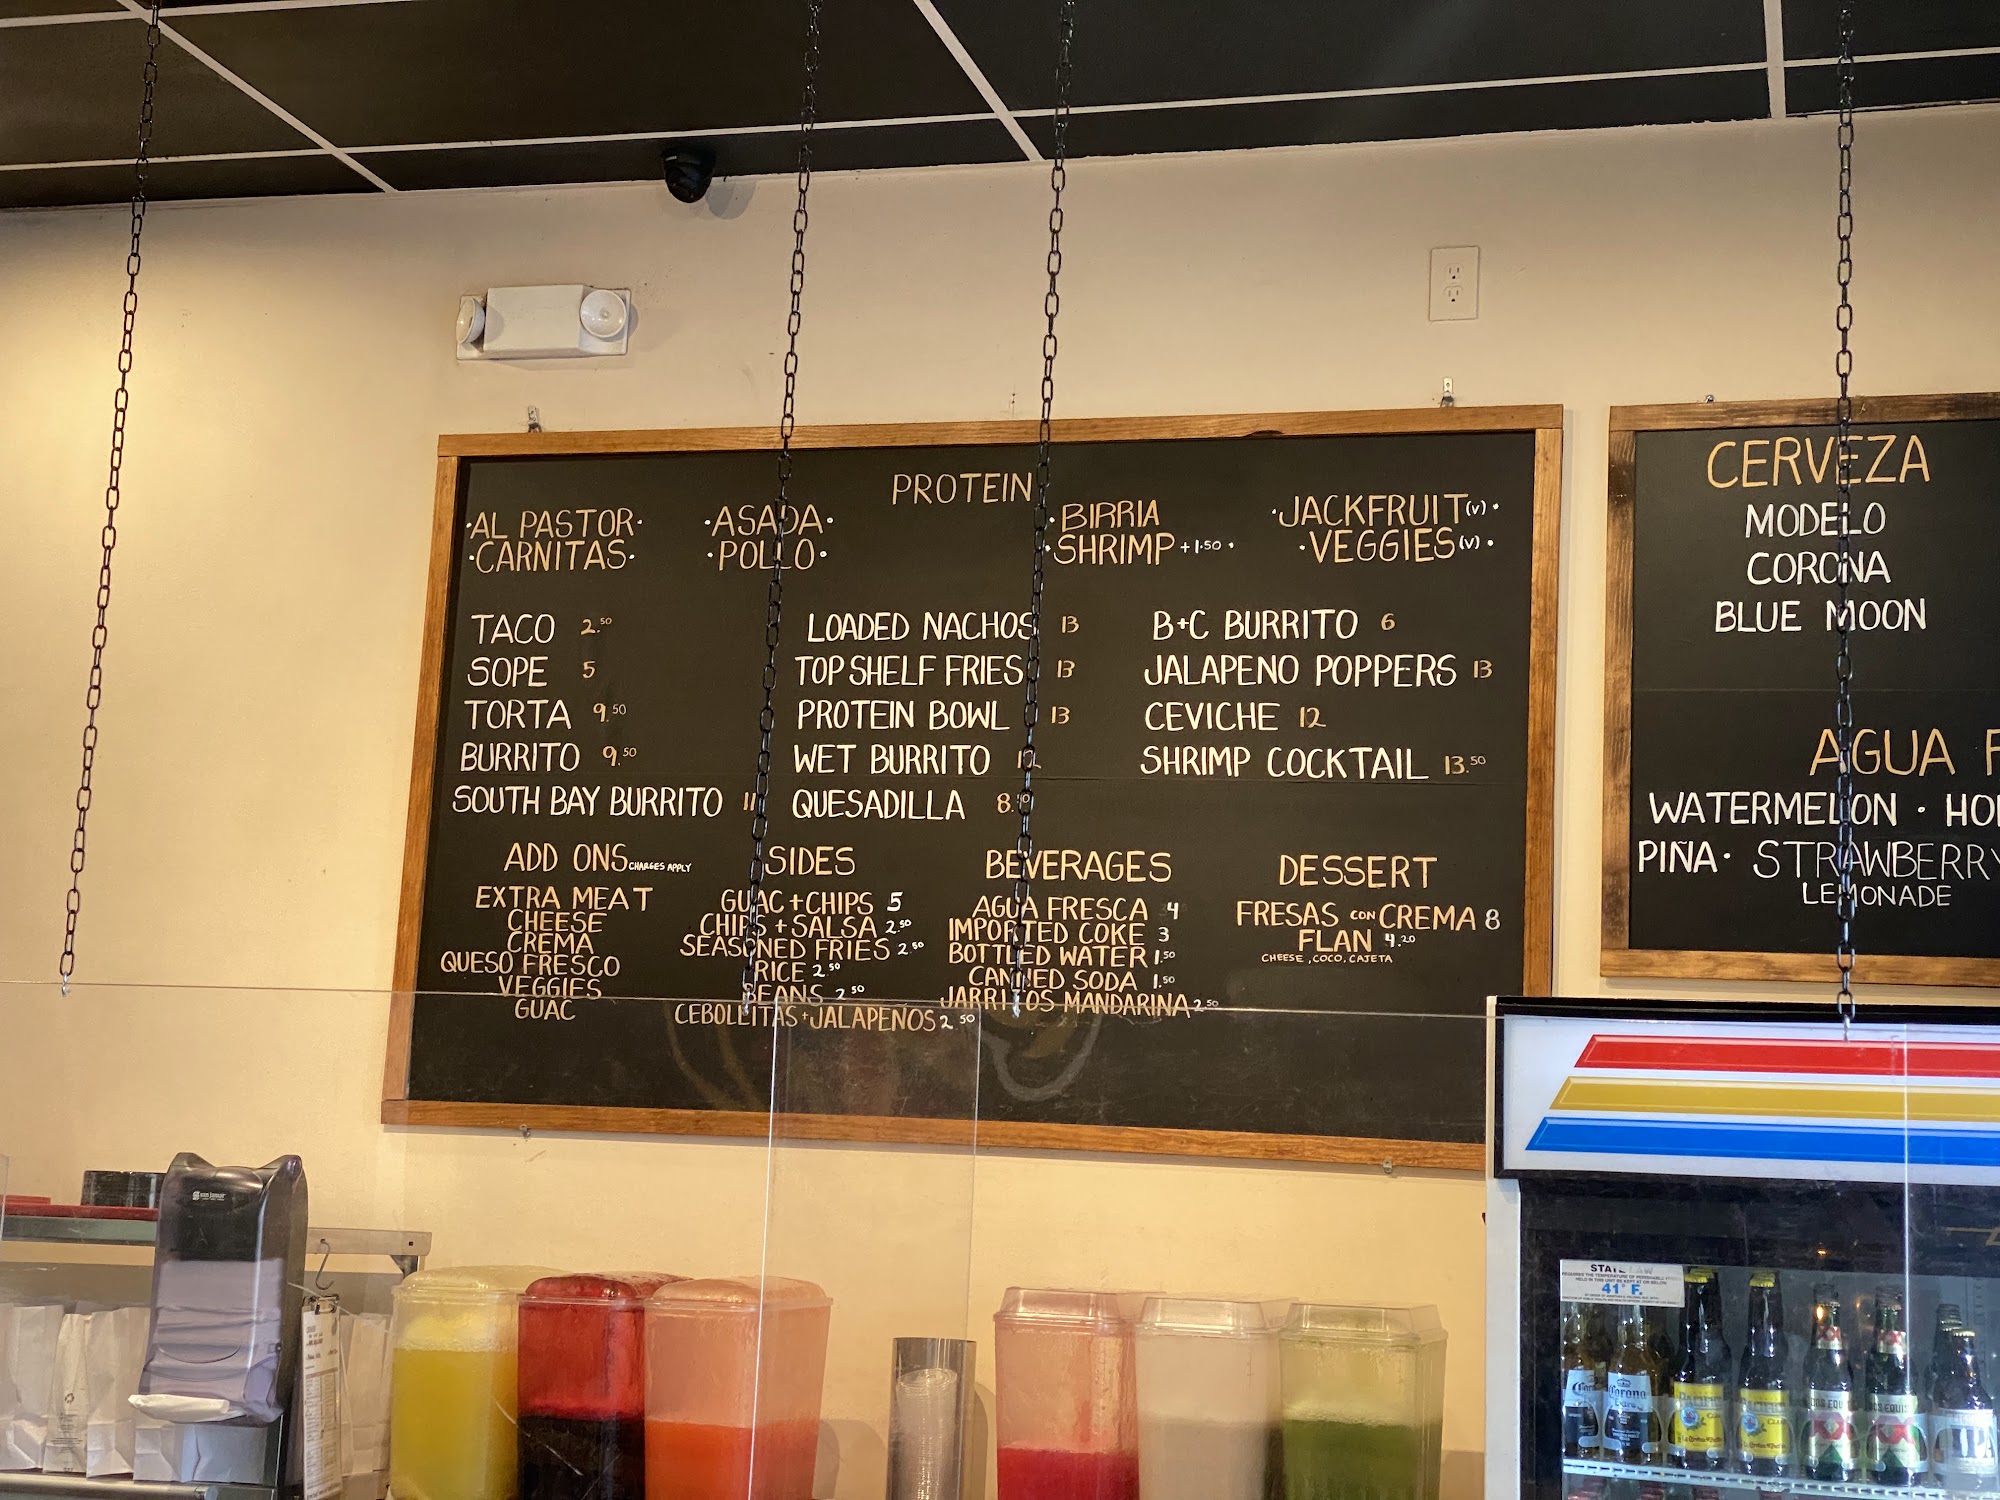 PROTEIN
·AL PASTOR· ·ASADA· ·BIRRIA ·JACKFRUIT(V)·
·CARNITAS· ·POLLO· ·SHRIMP +1.50· ·VEGGIES(V)·
TACO 2.50
SOPE 5
TORTA 9.50
BURRITO 9.50
SOUTH BAY BURRITO 11
LOADED NACHOS 13
TOP SHELF FRIES 13
PROTEIN BOWL 13
WET BURRITO 12
QUESADILLA 8.50
B+C BURRITO 6
JALAPENO POPPERS 13
CEVICHE 12
SHRIMP COCKTAIL 13.50
ADD ONS CHARGES APPLY
EXTRA MEAT
CHEESE
CREMA
QUESO FRESCO
VEGGIES
GUAC
SIDES
GUAC+CHIPS 5
CHIPS+SALSA 2.50
SEASONED FRIES 2.50
RICE 2.50
BEANS 2.50
CEBOLLITAS+JALAPEÑOS 2.50
BEVERAGES
AGUA FRESCA 4
IMPORTED COKE 3
BOTTLED WATER 1.50
CANNED SODA 1.50
JARRITOS MANDARINA 2.50
DESSERT
FRESAS CON CREMA 8
FLAN 4.20
CHEESE, COCO, CAJETA
CERVEZA
MODELO
CORONA
BLUE MOON
AGUA F
WATERMELON · HO
PIÑA · STRAWBERRY
LEMONADE
san jamar
STATE LAW
41° F.
Corona
Extra
PACIFICO
DOS EQUIS
XX
IPA